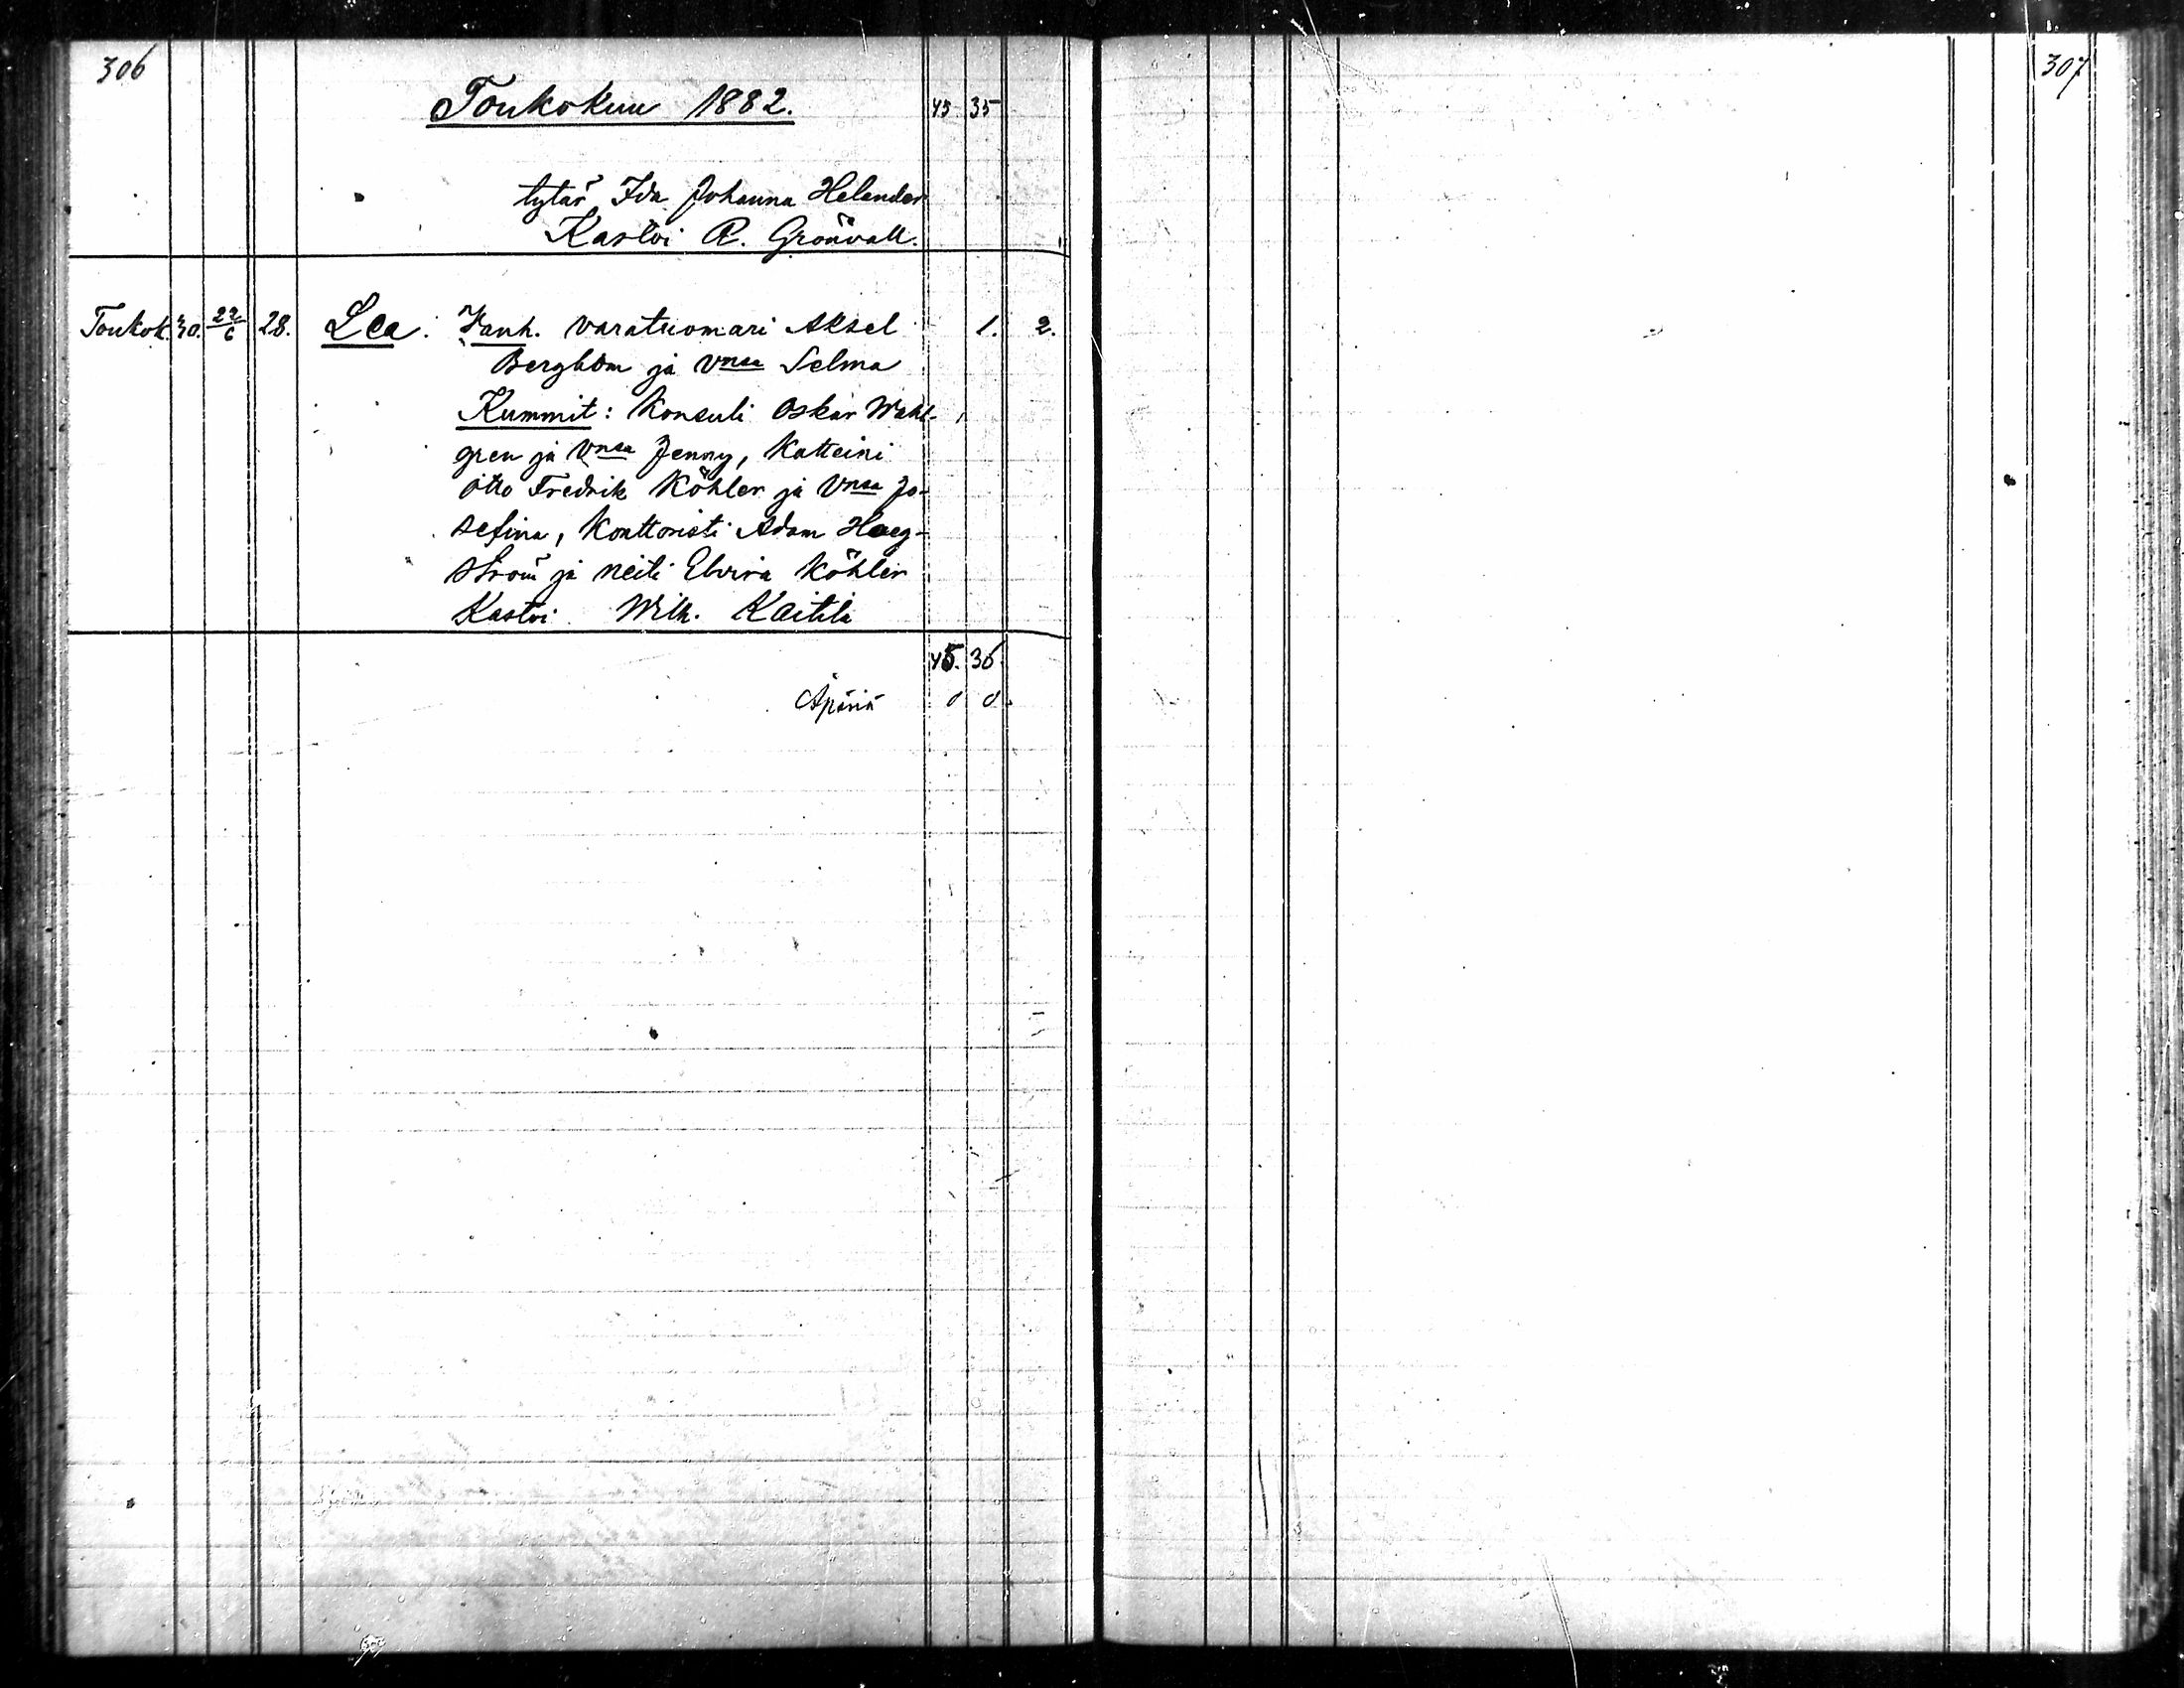 306
307
Toukokuu 1882. 45 35
tytär Ida Johanna Helander
Kastoi R. Grönvall.
Toukok. 30. 22/6 28. Lea. Vanh. varatuomari Aksel 1. 2.
Bergbom ja Vnsa Selma
Kummit: Konsuli Oskar Wahl-
gren ja Vnsa Jenny, Katteini
Otto Fredrik Köhler ja Vnsa Jo-
sefina, Konttoristi Adam Haeg-
ström ja neiti Elvira Köhler
Kastoi Wilh. Kaitila
45. 36.
Äpäriä 0 0.